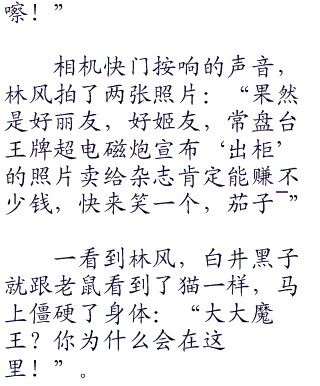 嚓！”
相机快门按响的声音，
林风拍了两张照片：“果然
是好丽友，好姬友，常盘台
王牌超电磁炮宣布‘出柜’
的照片卖给杂志肯定能赚不
少钱，快来笑一个，茄子~”
一看到林风，白井黑子
就跟老鼠看到了猫一样，马
上僵硬了身体：“大大魔
王？你为什么会在这
里！”。